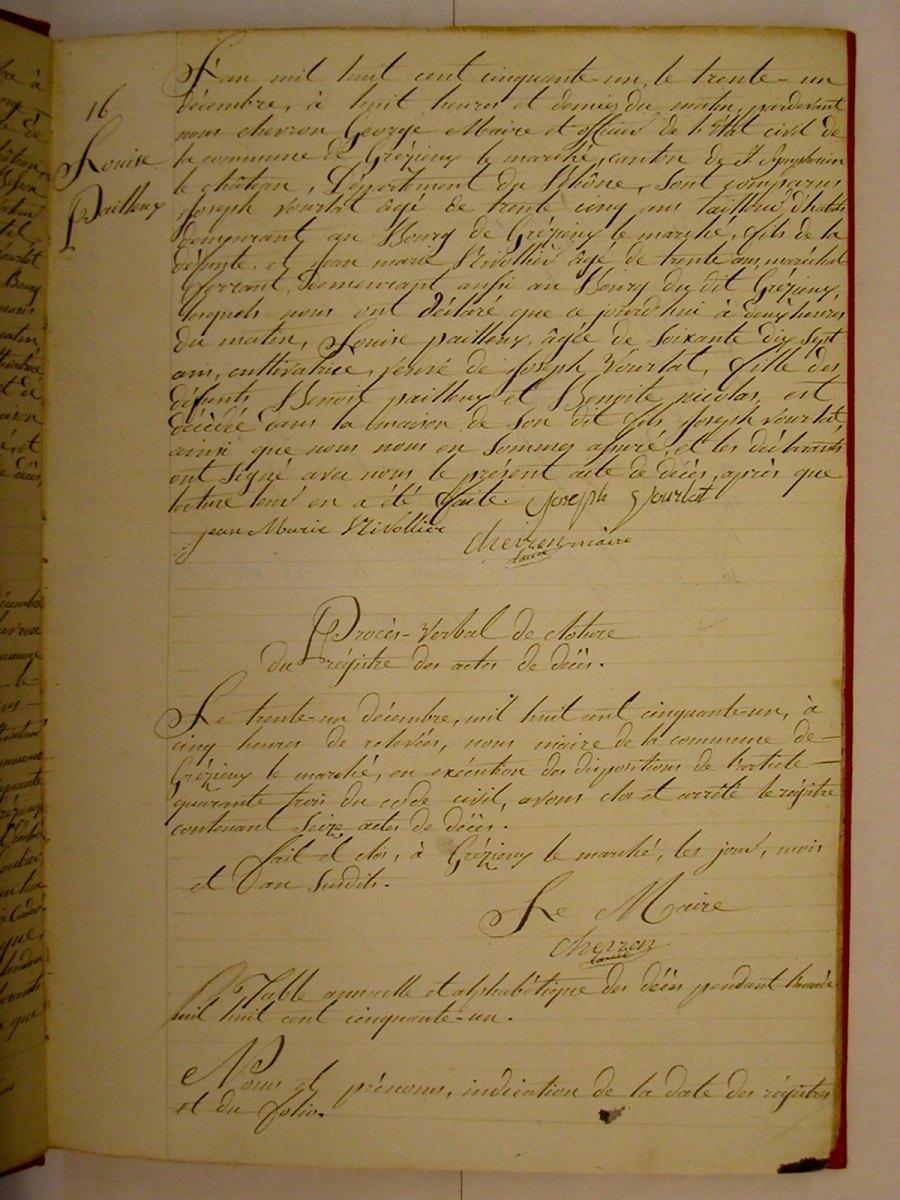 16
Louise
Pailleux
L'an mil huit cent cinquante-un, le trente-un
décembre, à huit heures et demies du matin, pardevant
nous chevron George Maire et officier de l'état civil de
la commune de Grézieux le marché, canton de St Symphorien
le château, Département du Rhône, sont comparus
Joseph Vourlat âgé de trente cinq ans tailleur d'habits
demeurant au Bourg de Grézieux le marché, fils de la
défunte, et jean marie Rivollier âgé de trente ans, maréchal
ferrant, demeurant aussi au Bourg du dit Grézieux,
lesquels nous ont déclaré que ce jourd'hui à deux heures
du matin, Louise pailleux, âgée de soixante dix sept
ans, cultivatrice, veuve de Joseph Vourlat, fille des
défunts Benoit pailleux et Benoite picolas, est
décédée dans la maison de son dit fils Joseph Vourlat,
ainsi que nous nous en sommes assuré, et les déclarants
ont signé avec nous le présent acte de décès, après que
lecture leur en a été faite. Joseph Vourlat
jean Marie Rivollier
chevron maire
Procès-Verbal de cloture
du régistre des actes de décès.
Le trente-un décembre, mil huit cent cinquante-un, à
cinq heures de relevées, nous maire de la commune de
Grézieux le marché, en exécution des dispositions de l'article
quarante trois du code civil, avons clos et arrêté le régistre
contenant seize actes de décès.
Fait et clos, à Grézieux le marché, les jour, mois
et an susdits.
Le Maire
chevron
Table annuelle et alphabétique des décès pendant l'année
mil huit cent cinquante-un.
Noms et prénoms, indication de la date des régistres
et du folio.